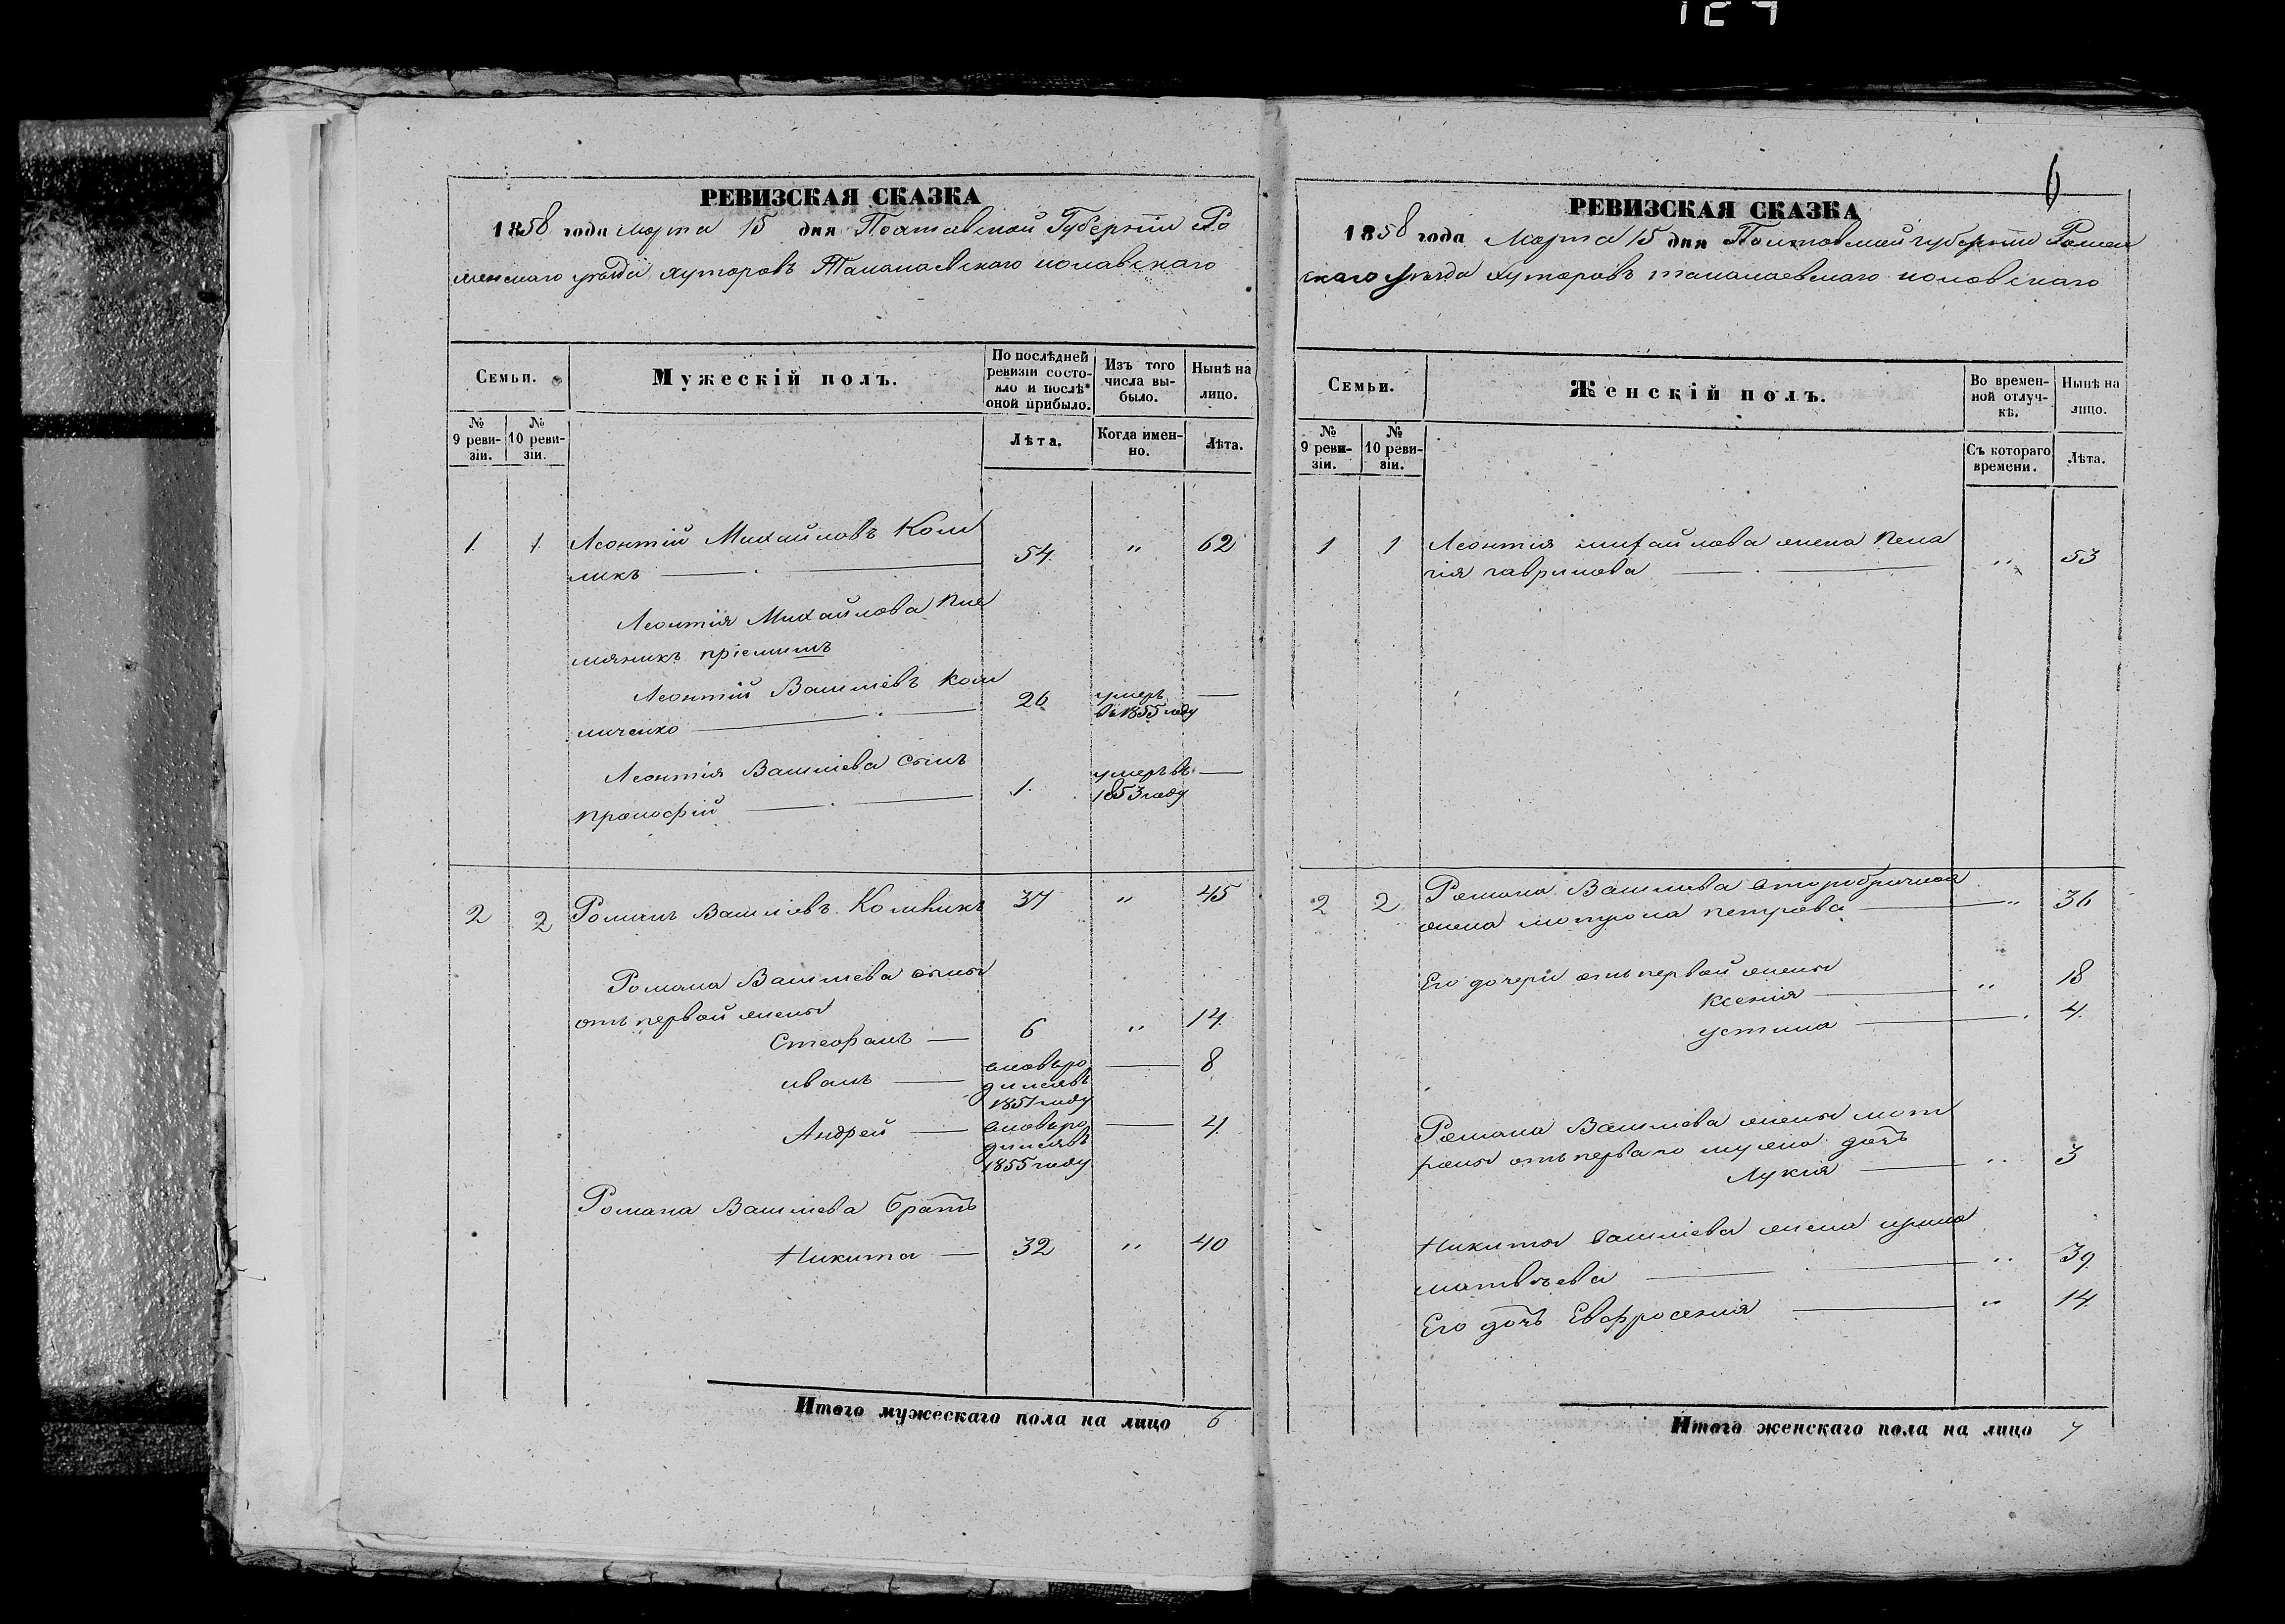 РЕВИЗСКАЯ СКАЗКА
1858 года Марта 15 дня Полтавской Губерніи Ро
менскаго уѣзда хуторовъ Талалаевскаго
Семьи.
Мужескій полъ.
По послѣдней ревизіи состояло и послѣ оной прибыло.
Изъ того числа выбыло.
Нынѣ на лицо.
№ 9 ревизіи.
№ 10 ревизіи.
Лѣта.
Когда именно.
Лѣта.
1 1 Леонтій Михайловъ Кол 54 " 62
Леонтія Михайлова пле
мяникъ пріемышъ
Леонтій Василіевъ 26 умеръ въ 1855 году —
Леонтія Василіева сынъ
Прокофій — 1 умеръ въ 1853 году —
2 2 Романъ Василіевъ 37 " 45
Романа Василіева сыны
отъ первой жены
Стефанъ — 6 " 14
иванъ — вновь родился въ 1851 году — 8
Андрей — вновь родился въ 1855 году — 4
Романа Василіева братъ
Никита — 32 " 40
Итого мужескаго пола на лицо 6
6
РЕВИЗСКАЯ СКАЗКА
1858 года Марта 15 дня Полтавской губерніи Ромен
скаго уѣзда хуторовъ талалаевскаго
Семьи.
Женскій полъ.
Во временной отлучкѣ.
Нынѣ на лицо.
№ 9 ревизіи.
№ 10 ревизіи.
Съ котораго времени.
Лѣта.
1 1 Леонтія михайлова жена Пела
гія гаврилова — " 53
2 2 Романа Василіева второбрачная
жена мотрона петрова — " 36
Его дочери отъ первой жены
Ксенія — " 18
устина — 4
Романа Василіева жены мот
роны отъ перваго мужа дочь
Лукія — " 3
Никиты василіева жена ирина
матвѣева — " 39
Его дочь Евфросенія — " 14
Итого женскаго пола на лицо 7